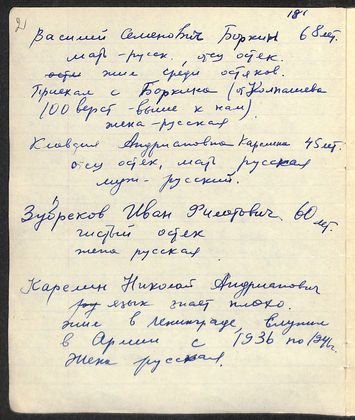 2)
181
Василий Семенович Боркин 68 лет.
мать - русск., отец остек.
жил среди остяков.
Приехал с Боркина (от Колпашева
100 верст - выше к нам)
жена - русская
Клавдия Андриановна Карелина 45 лет.
отец остек, мать русская
муж - русский.
Зубреков Иван Филатович 60 лет.
чистый остек
жена русская
Карелин Николай Андрианович
язык знает плохо.
жил в Ленинграде, служил
в Армии с 1936 по 1946 г.
Жена русская.